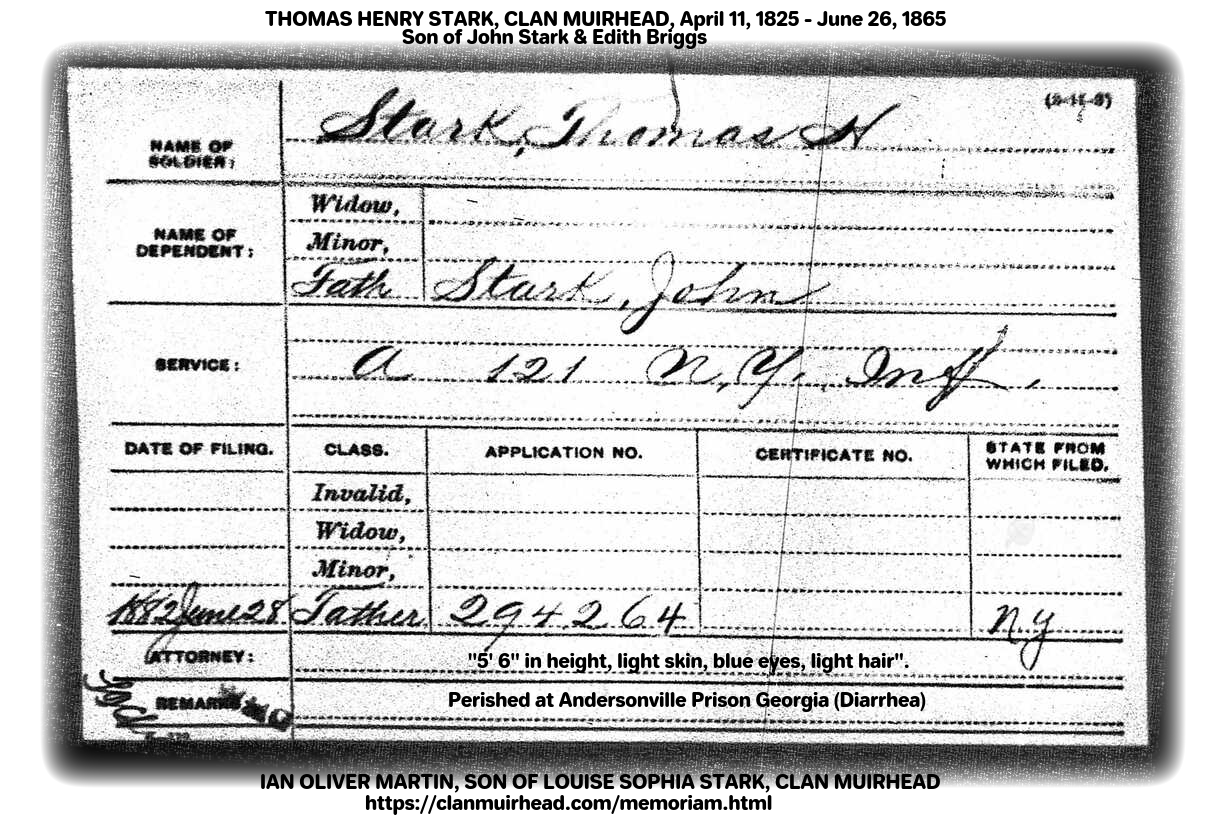 THOMAS HENRY STARK, CLAN MUIRHEAD, April 11, 1825 - June 26, 1865
Son of John Stark & Edith Briggs
NAME OF SOLDIER: Stark, Thomas H
NAME OF DEPENDENT:
Widow,
Minor,
Fath Stark, John
SERVICE: A 121 N.Y. Inf.
DATE OF FILING. CLASS. APPLICATION NO. CERTIFICATE NO. STATE FROM WHICH FILED.
Invalid,
Widow,
Minor,
1882 June 28 Father 294264 NY
ATTORNEY: "5' 6" in height, light skin, blue eyes, light hair".
REMARKS Perished at Andersonville Prison Georgia (Diarrhea)
IAN OLIVER MARTIN, SON OF LOUISE SOPHIA STARK, CLAN MUIRHEAD
https://clanmuirhead.com/memoriam.html